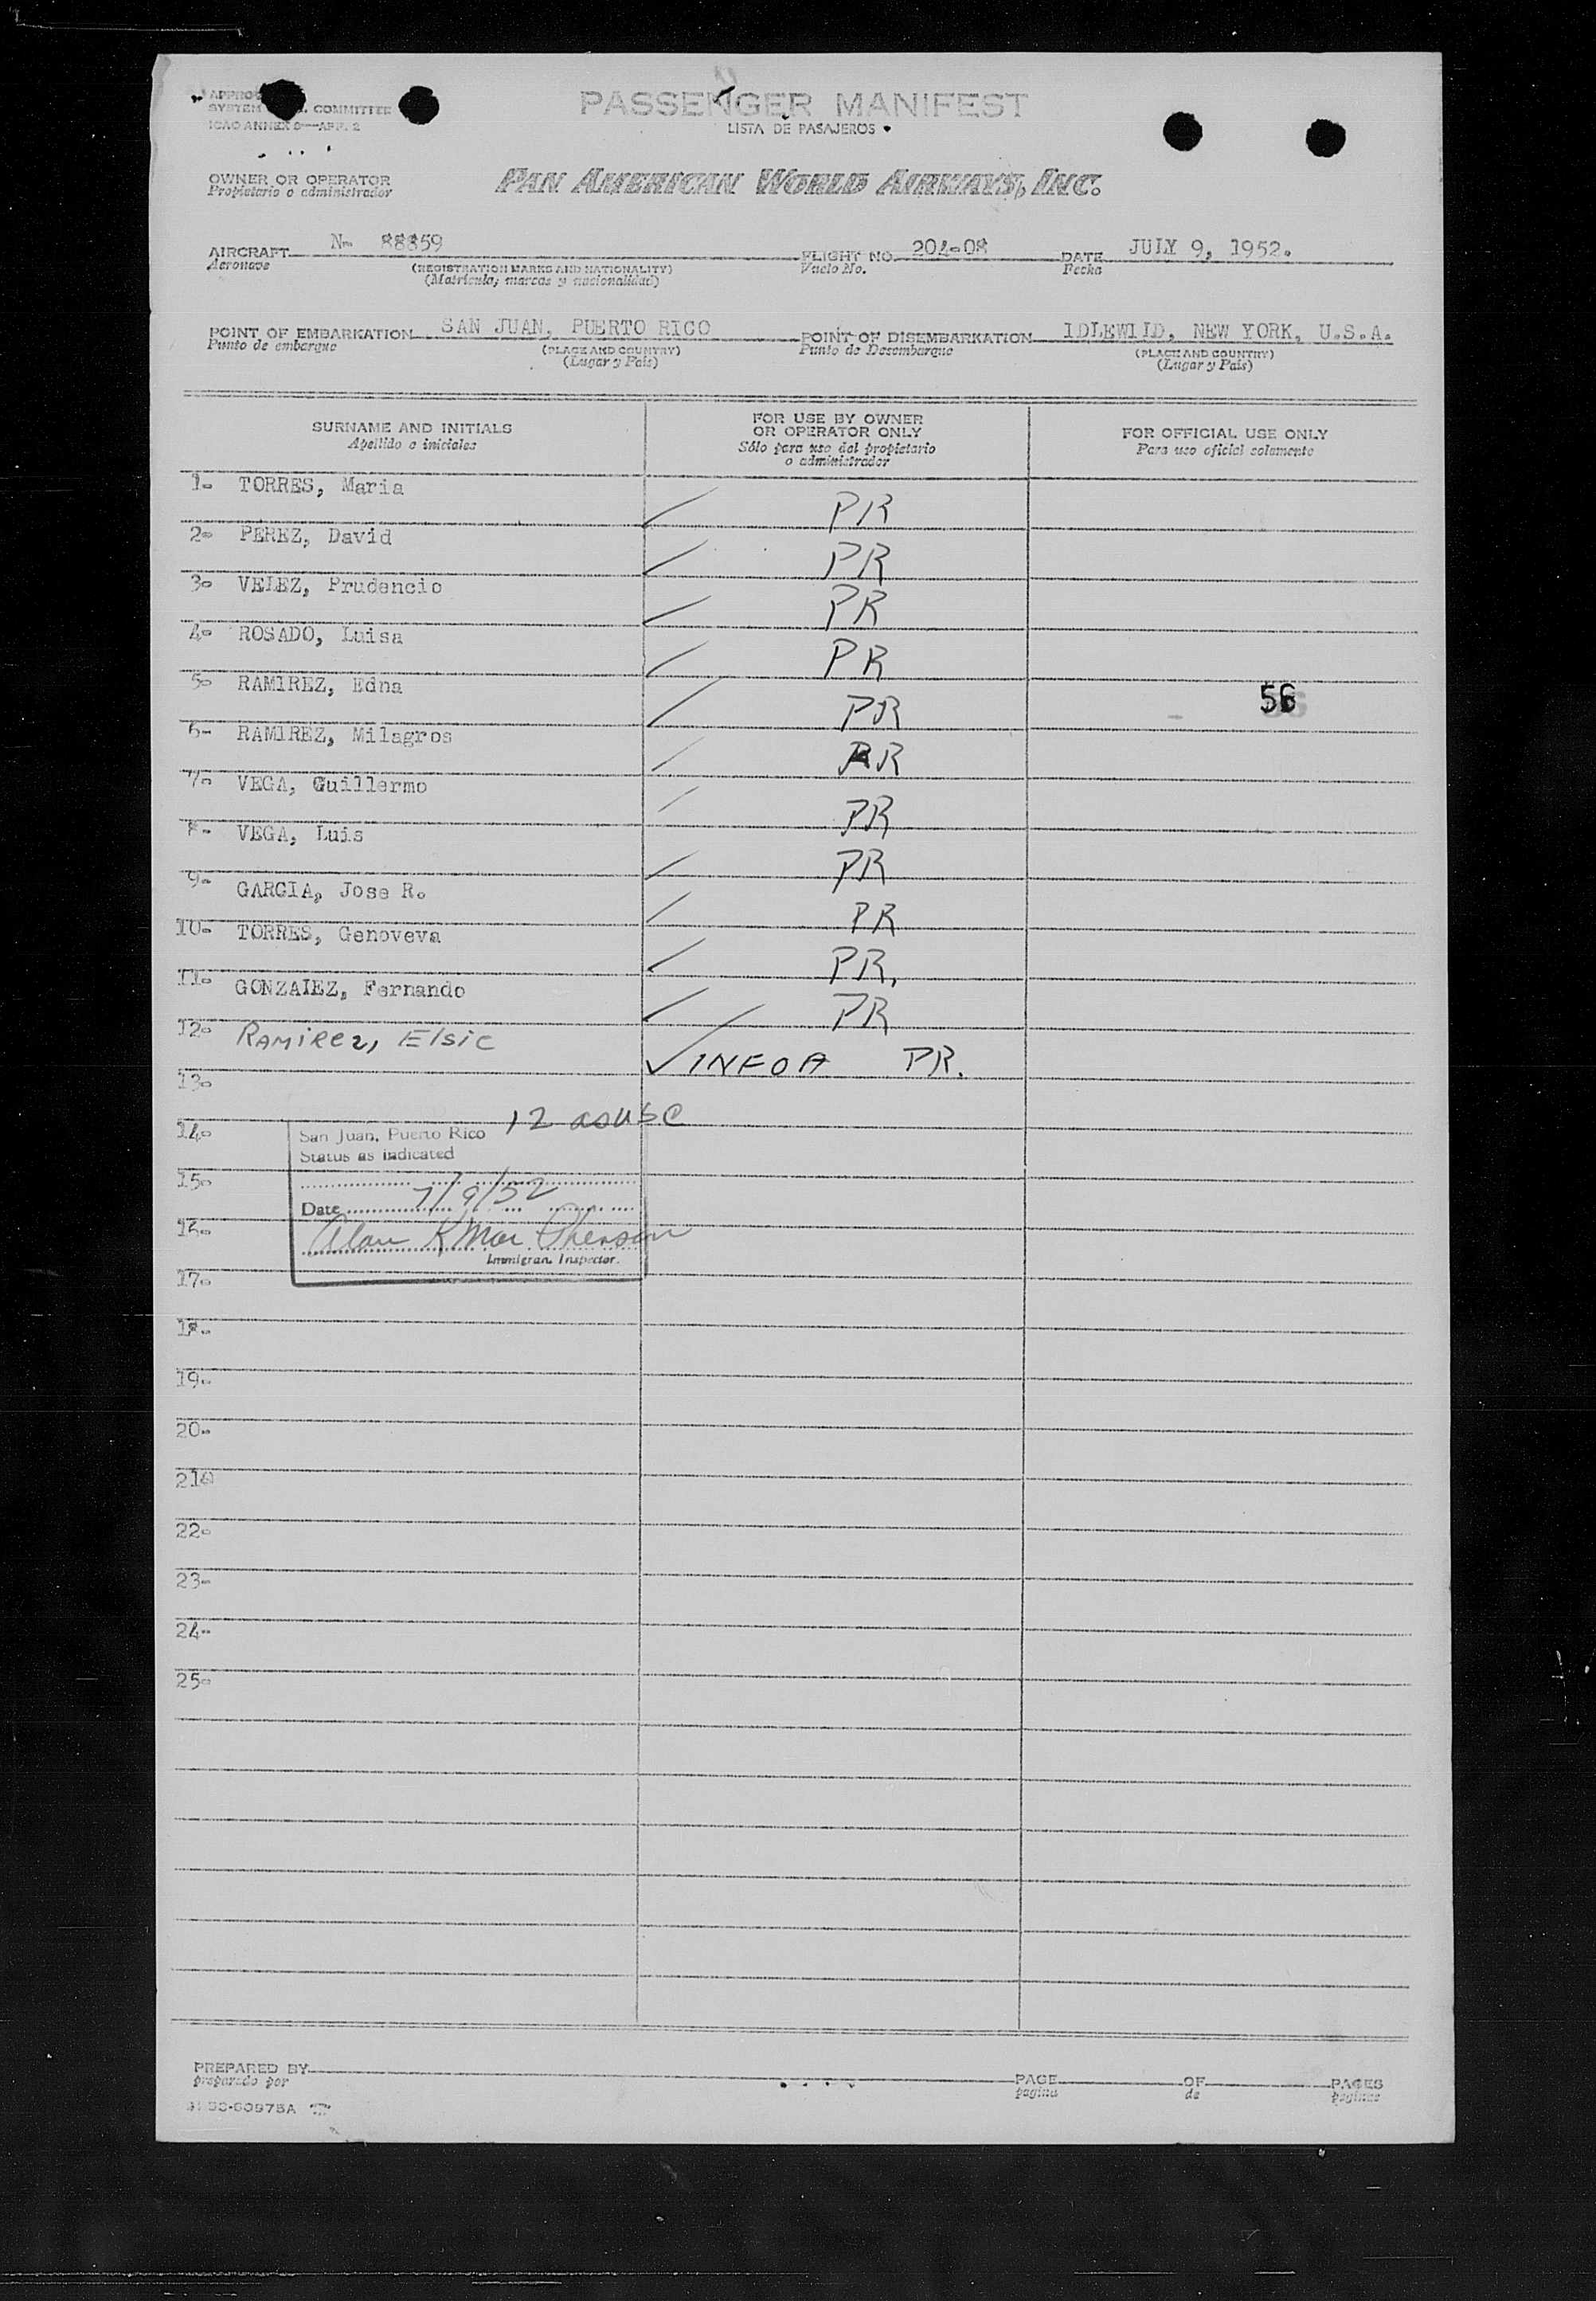 PASSENGER MANIFEST
LISTA DE PASAJEROS
COMMITTEE
ICAO ANNEX 9—APP. 2
OWNER OR OPERATOR
Propietario o administrador
PAN AMERICAN WORLD AIRWAYS, INC.
AIRCRAFT N- 88859 FLIGHT NO. 204-08 DATE JULY 9, 1952.
Aeronave (REGISTRATION MARKS AND NATIONALITY) Vuelo No. Fecha
(Matrícula, marcas y nacionalidad)
POINT OF EMBARKATION SAN JUAN, PUERTO RICO POINT OF DISEMBARKATION IDLEWILD, NEW YORK, U.S.A.
Punto de embarque (PLACE AND COUNTRY) Punto de Desembarque (PLACE AND COUNTRY)
(Lugar y País) (Lugar y País)
SURNAME AND INITIALS FOR USE BY OWNER OR OPERATOR ONLY FOR OFFICIAL USE ONLY
Apellido o iniciales Sólo para uso del propietario o administrador Para uso oficial solamente
1- TORRES, Maria PR
2- PEREZ, David PR
3- VELEZ, Prudencio PR
4- ROSADO, Luisa PR
5- RAMIREZ, Edna PR 56
6- RAMIREZ, Milagros PR
7- VEGA, Guillermo PR
8- VEGA, Luis PR
9- GARCIA, Jose R. PR
10- TORRES, Genoveva PR.
11- GONZALEZ, Fernando PR
12- Ramirez, Elsie INFOA PR.
13-
14- 12
San Juan, Puerto Rico
Status as indicated
15-
Date 7/9/52
16-
Immigran. Inspector.
17-
18-
19-
20-
21-
22-
23-
24-
25-
PREPARED BY PAGE OF PAGES
preparado por pagina de paginas